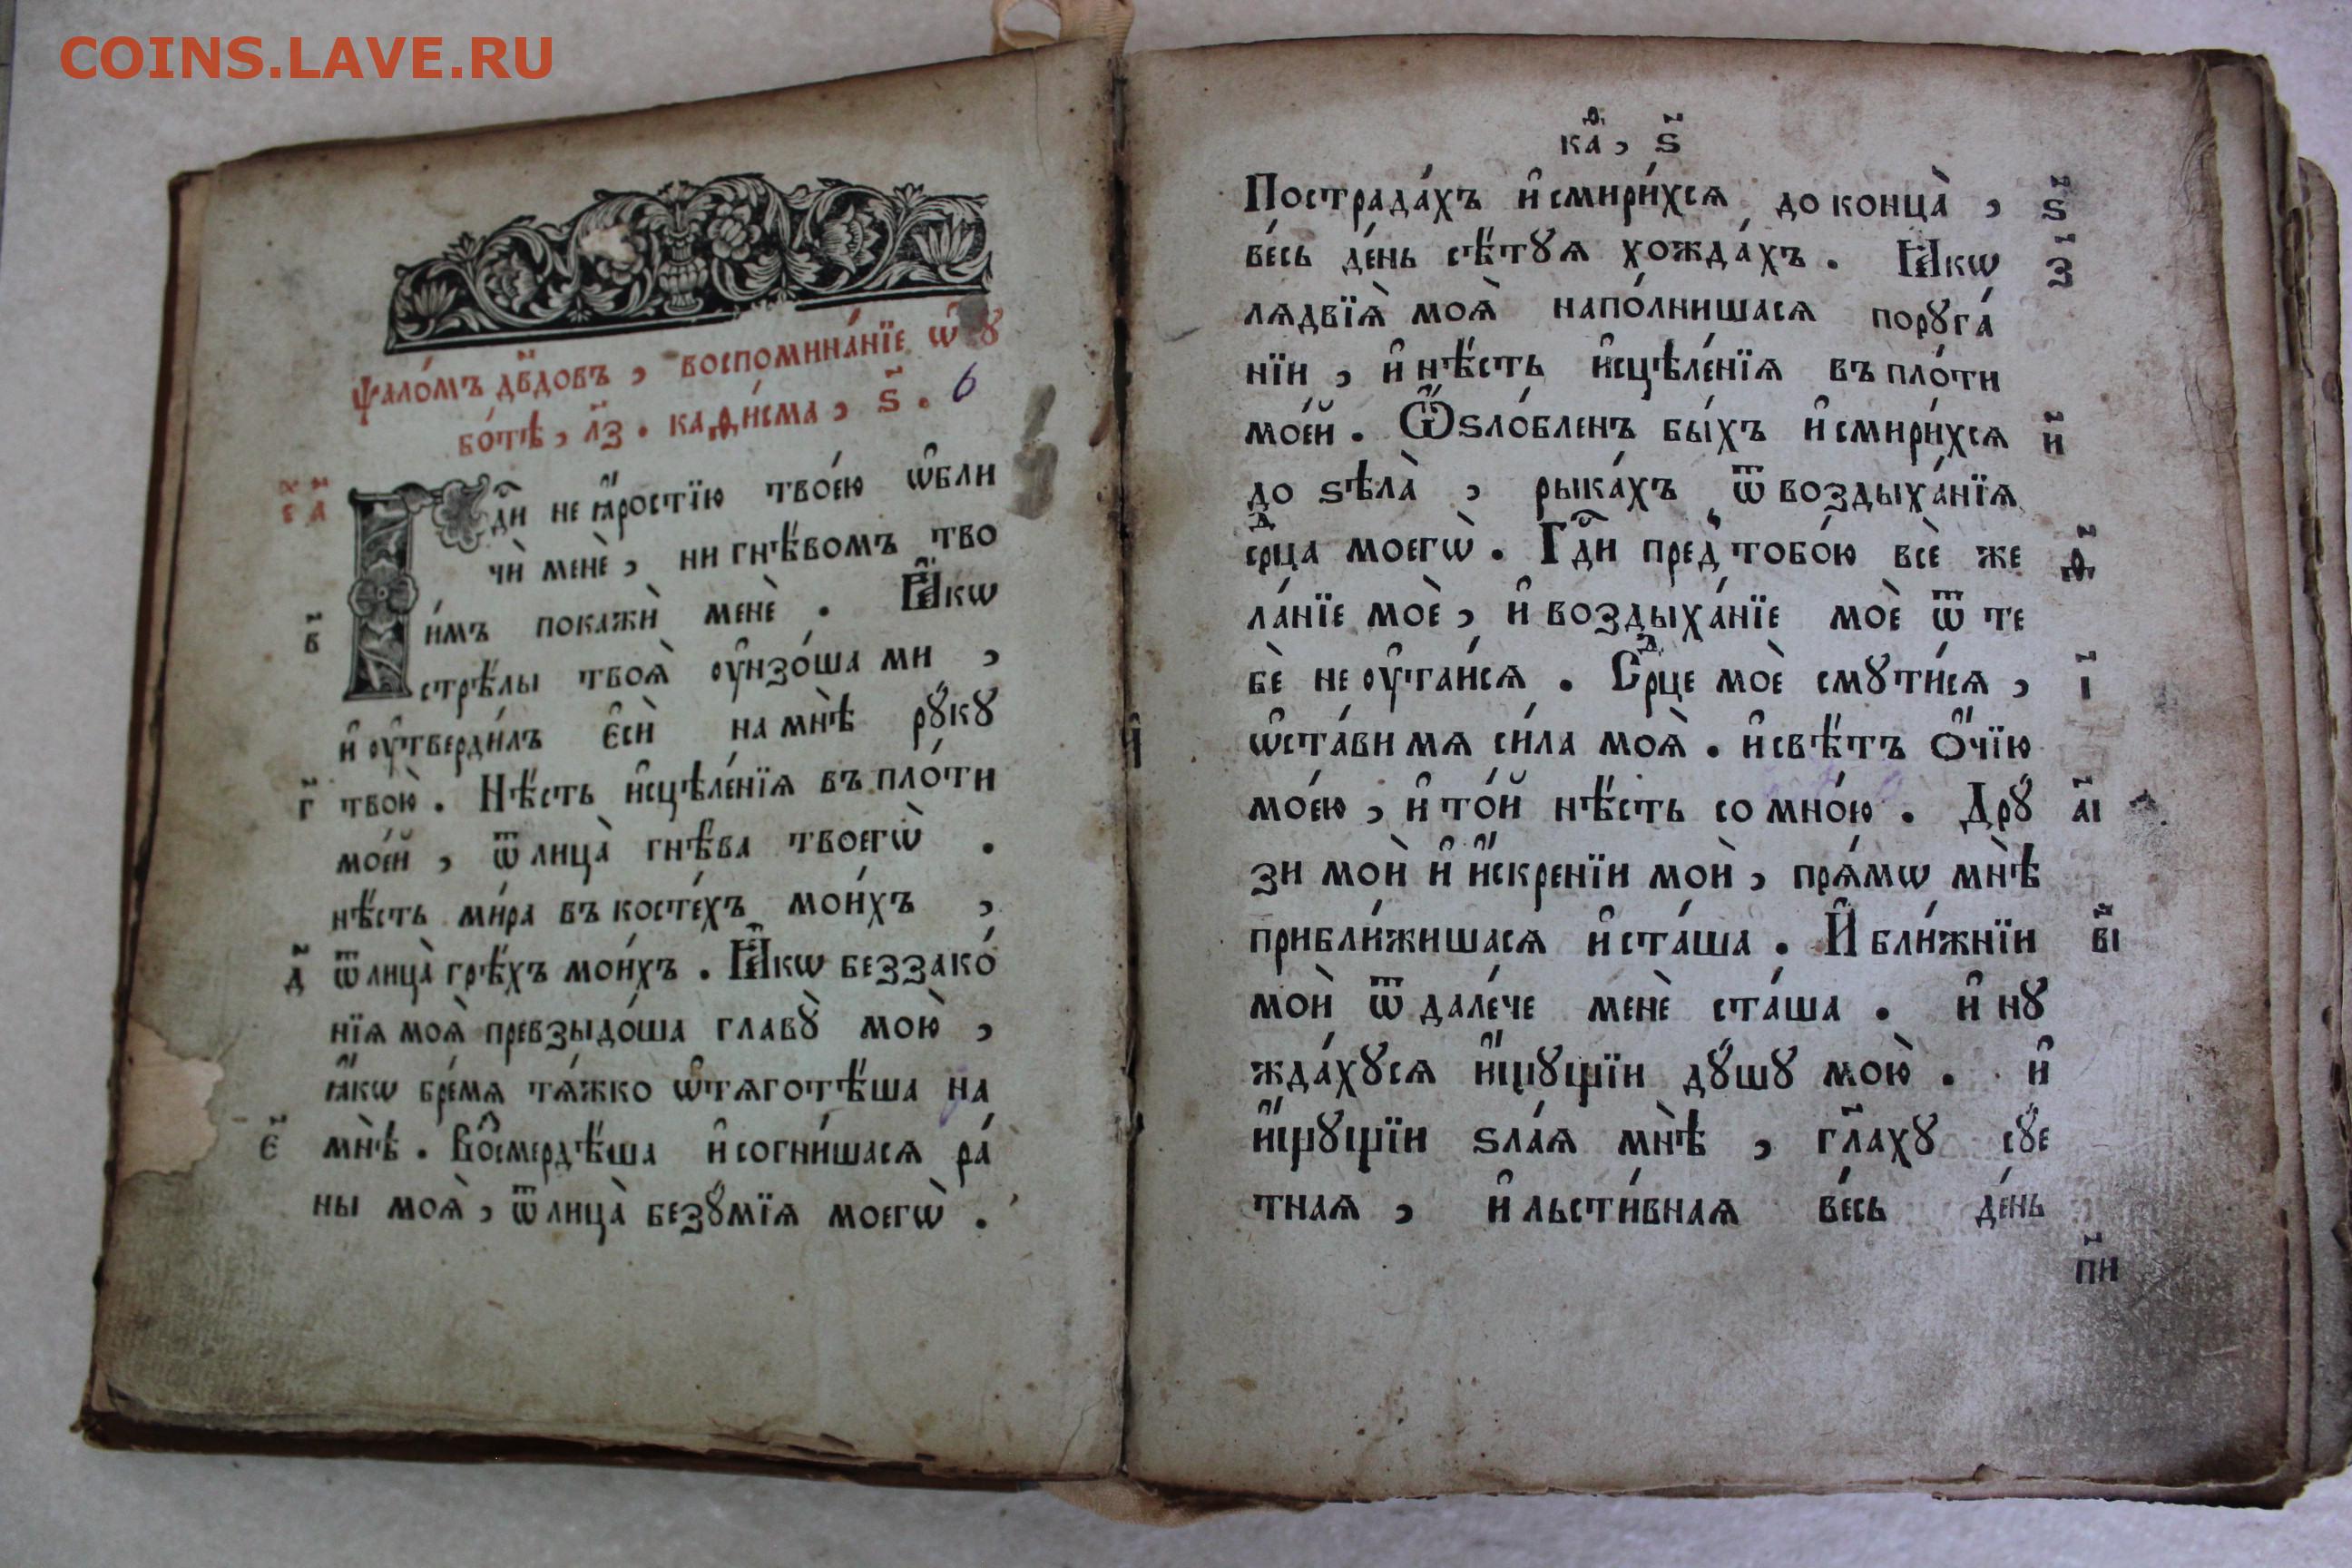 COINS.LAVE.RU
Ѱало́мъ дв҃довъ , воспомина́нїе ѡ҆ сꙋ
бо́тѣ , л҃з . каѳи́сма , ѕ҃ . 6
Г҇ди не ꙗ҆́ростїю твое́ю ѡ҆бли
чѝ менѐ , ни гнѣ́вомъ тво
в҃ и́мъ покажѝ менѐ . Ꙗ҆́кѡ
стрѣ́лы твоѧ̀ ᲂу҆нзо́ша ми ,
и҆ ᲂу҆тверди́лъ є҆сѝ на мнѣ̀ рꙋ́кꙋ
г҃ твою̀ . Нѣ́сть и҆сцѣле́нїѧ въ пло́ти
мое́й , ѿ лица̀ гнѣ́ва твоегѡ̀ .
нѣ́сть ми́ра въ косте́хъ мои́хъ ,
д҃ ѿ лица̀ грѣ́хъ мои́хъ . Ꙗ҆́кѡ беззако́
нїѧ моѧ̀ превзыдо́ша главꙋ̀ мою̀ ,
ꙗ҆́кѡ бре́мѧ тѧ́жко ѡ҆тѧготѣ́ша на
є҃ мнѣ̀ . Во́смердѣ́ша и҆ согни́шасѧ ра́
ны моѧ̀ , ѿ лица̀ безꙋ́мїѧ моегѡ̀ .
каѳ , ѕ҃
Пострада́хъ и҆ смири́хсѧ до конца̀ , ѕ҃
ве́сь де́нь сѣ́тꙋѧ хожда́хъ . Ꙗ҆́кѡ з҃
лѧдвїѧ̀ моѧ̀ напо́лнишасѧ порꙋга́
нїи , и҆ нѣ́сть и҆сцѣле́нїѧ въ пло́ти
мое́й . Ѿѕло́бленъ бы́хъ и҆ смири́хсѧ и҃
до ѕѣла̀ , рыка́хъ ѿ воздыха́нїѧ
срⷣца моегѡ̀ . Г҇ди пред̾ тобо́ю всѐ же ѳ҃
ла́нїе моѐ , и҆ воздыха́нїе моѐ ѿ те
бѐ не ᲂу҆таи́сѧ . Срⷣце моѐ смꙋти́сѧ , і҃
ѡ҆ста́ви мѧ си́ла моѧ̀ . и҆ свѣ́тъ ѻ҆́чїю
мое́ю , и҆ то́й нѣ́сть со мно́ю . Дрꙋ́ а҃і
зи моѝ и҆ и҆́скренїи моѝ , прѧ́мѡ мнѣ̀
прибли́жишасѧ и҆ ста́ша . И҆ бли́жнїи в҃і
моѝ ѿ дале́че менѐ ста́ша . и҆ нꙋ
жда́хꙋсѧ и҆́щꙋщїи дꙋ́шꙋ мою̀ . и҆
и҆́щꙋщїи ѕла́ѧ мнѣ̀ , гл҃ахꙋ сꙋ́е
тнаѧ , и҆ льсти́внаѧ ве́сь де́нь
п҃и